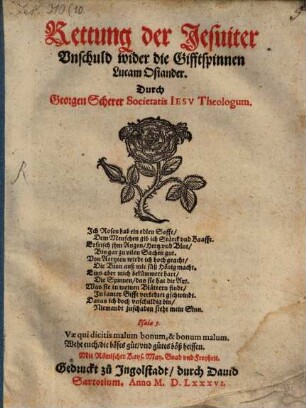 Rettung der Jesuiter
Vnschuld wider die Gifftspinnen
Lucam Osiander.
Durch
Georgen Scherer Societatis IESV Theologum.
Ich Rosen hab ein edlen Saffe/
Dem Menschen gib ich Stärck vnd Kraafft.
Erfrisch jhm Augen/ Hertz vnd Blut/
Bin gar zu vilen Sachen gut.
Von Aertzten wirdt ich hoch geacht/
Die Bine auß mir süß Hönig macht.
Eins aber mich bekümmert hart/
Die Spinnen/ das sie hat die Art.
Was sie in meinen Blättern finde/
In lauter Gifft verkehret geschwinde.
Daran ich doch vnschuldig bin/
Niemandt zuschaden steht mein Sinn.
Isaie 5.
Væ qui dicitis malum bonum, & bonum malum.
Weh euch/ die böses gut/ vnd gutes böß heissen.
Mit Römischer Kays. May. Gnad vnd Freyheit.
Gedruckt zu Ingolstadt/ durch Dauid
Sartorium. Anno M. D. LXXXVI.